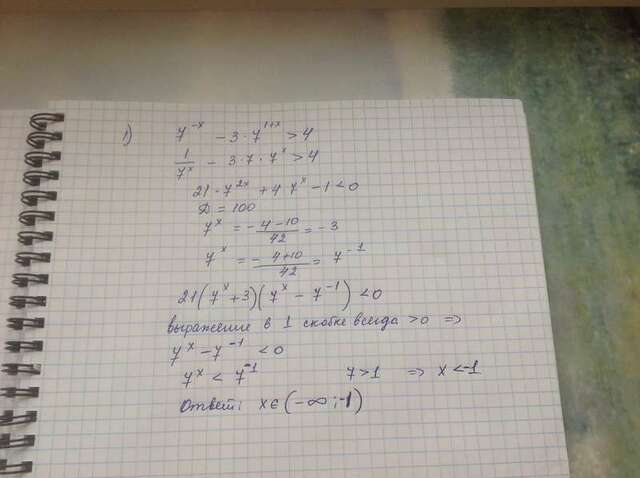 1) 7^{-x} - 3 · 7^{1+x} > 4
\frac{1}{7^x} - 3 · 7 · 7^x > 4
21 · 7^{2x} + 4 7^x - 1 < 0
Д = 100
7^x = \frac{-4-10}{42} = -3
7^x = \frac{-4+10}{42} = 7^{-1}
21(7^x + 3)(7^x - 7^{-1}) < 0
выражение в 1 скобке всегда > 0 ⇒
7^x - 7^{-1} < 0
7^x < 7^{-1} 7 > 1 ⇒ x < -1
Ответ: x ∈ (-∞; -1)